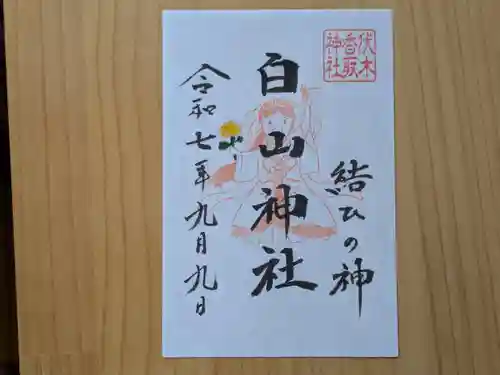 伏木
香取
神社
結ひの神
白山神社
令和七年九月九日